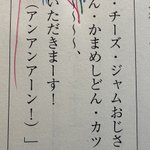 ・チーズ・ジャムおじさ
ん・かまめしどん・カツ
〜〜、
いただきまーす!
(アンアンアーン!)」